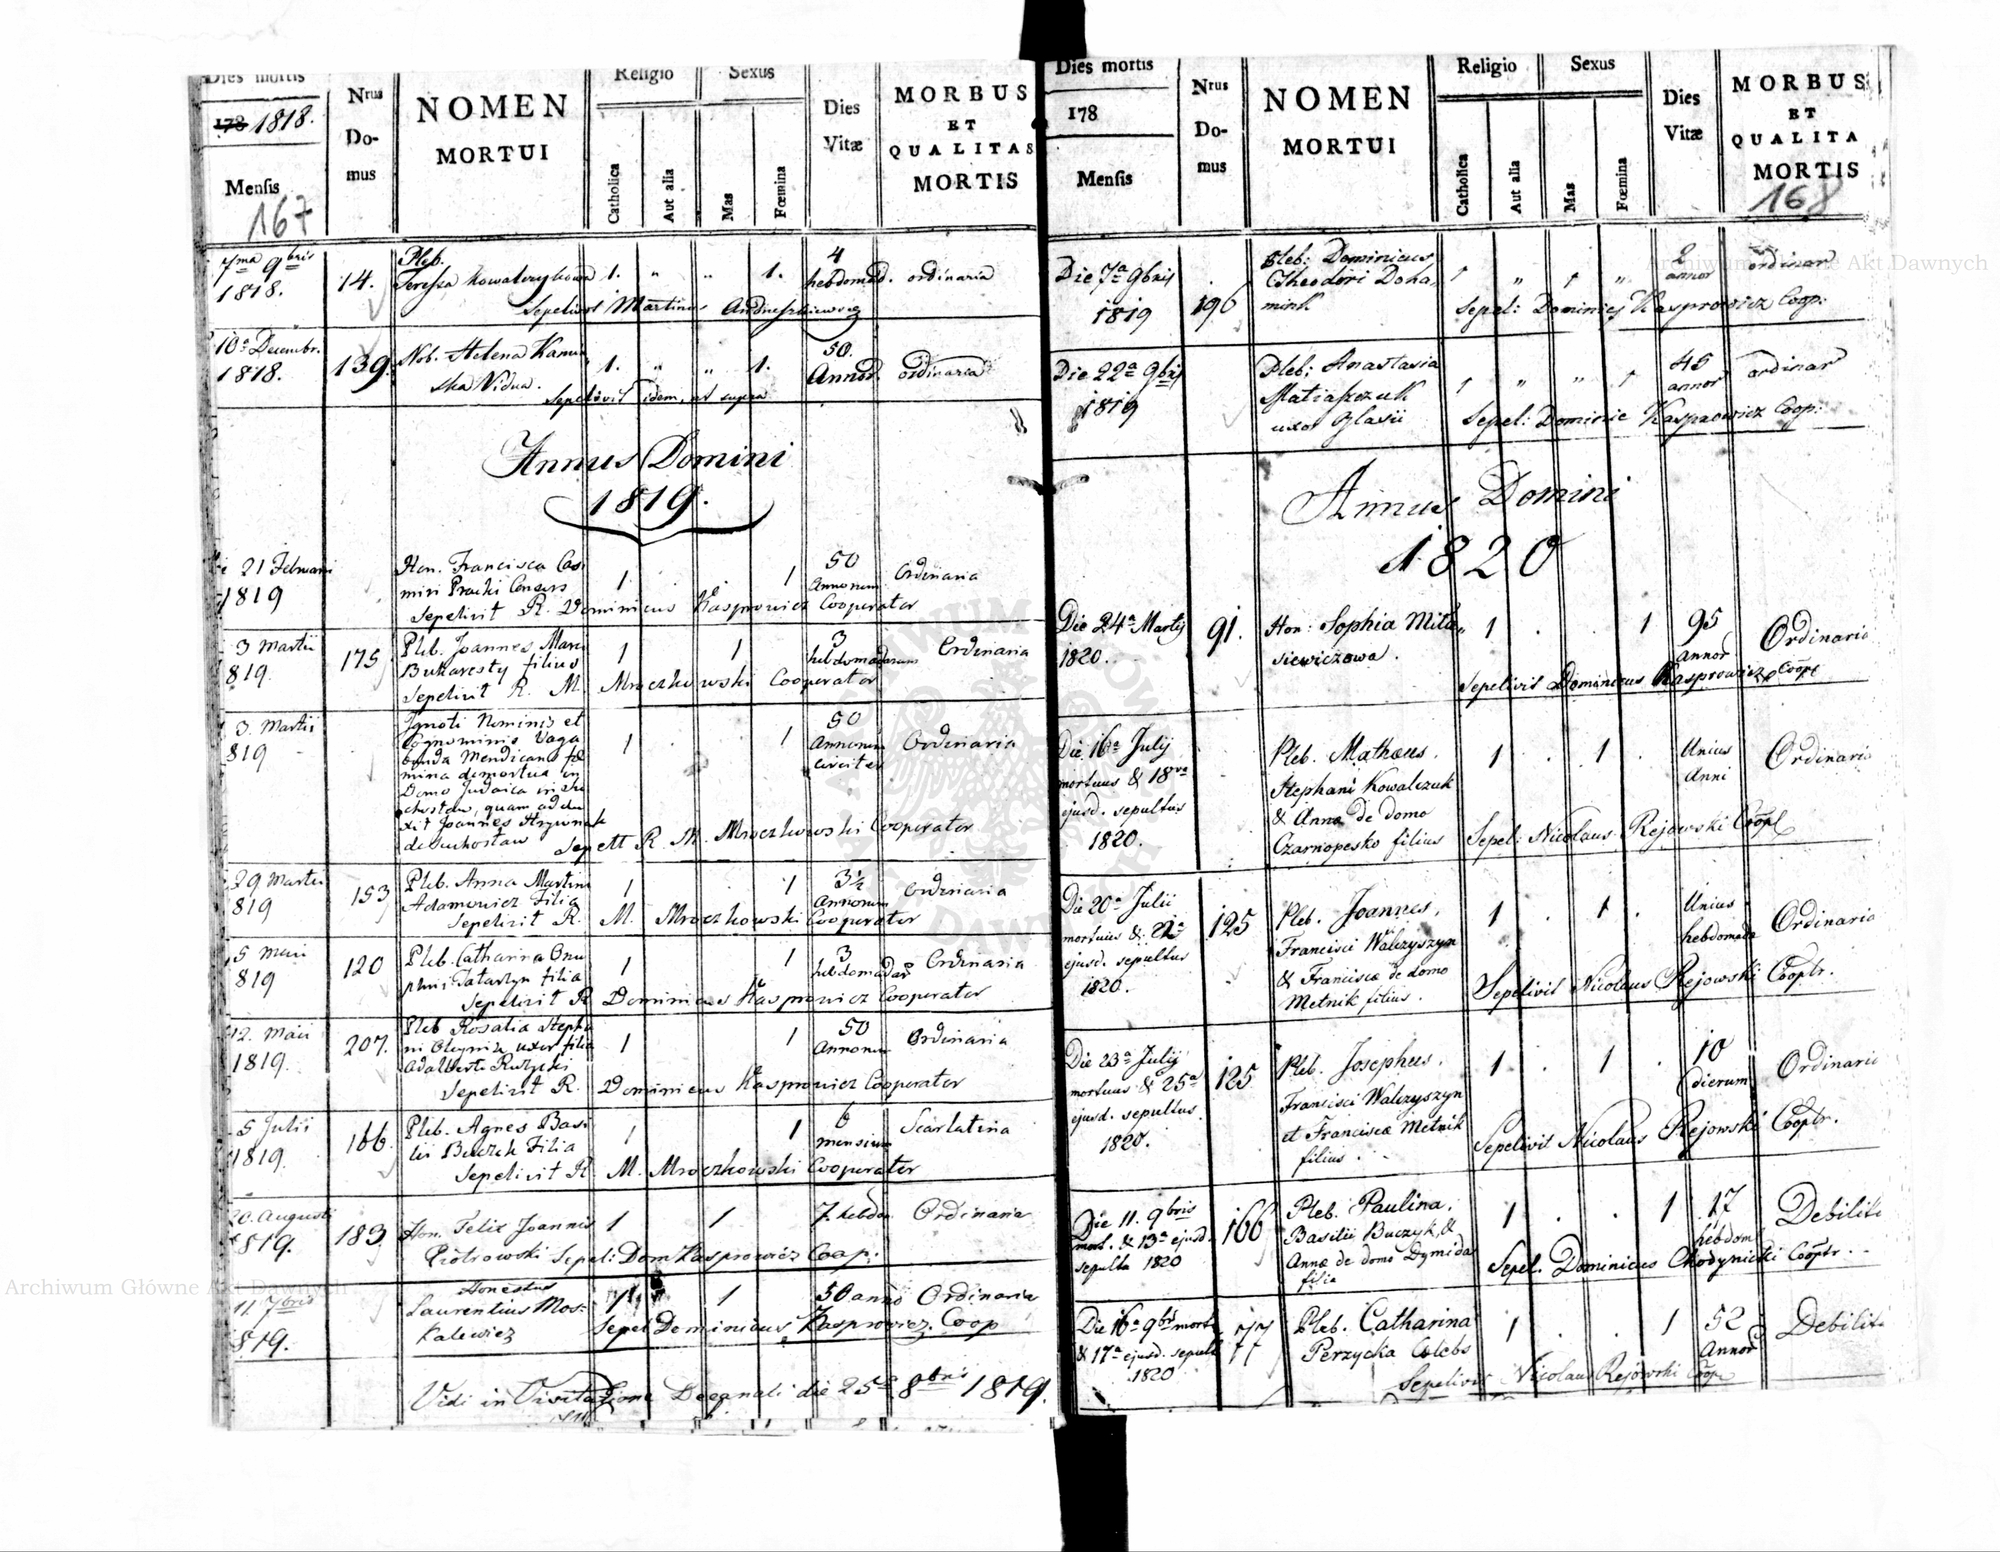 Dies mortis
178 1818.
Mensis
167
Nrus
Do-
mus
NOMEN
MORTUI
Religio
Sexus
Catholica
Aut alia
Mas
Fœmina
Dies
Vitæ
MORBUS
ET
QUALITAS
MORTIS
7ma 9bris
1818.
14.
Pleb.
Teressa Kowalczykowa
1. „ „ 1.
4
hebdomad.
ordinaria
Sepelivit Martinus
10a Decembr.
1818.
139.
Nob. Helena Kamin
ska Vidua.
1. „ „ 1.
50.
Annor.
ordinaria
Sepelivit idem, ut supra
Annus Domini
1819.
21 Februarii
1819
Hon. Francisca Casi
miri
1 1
50
Annorum
Ordinaria
Sepelivit R. Dominicus Kasprowicz Cooperator
3 Martii
819.
175
Pleb. Joannes Mari
Bukaresty filius
1 1
3
hebdomadarum
Ordinaria
Sepelivit R. M. Mroczkowski Cooperator
3. Martii
819
Ignoti Nominis et
Cognominis Vaga
bunda Mendicans fœ
mina demortua in
Domo Judaica in Su
chostaw, quam addu
xit Joannes
de Suchostaw
1 1
50
Annorum
circiter
Ordinaria
Sepelit R. M. Mroczkowski Cooperator
29 Martii
819
153
Pleb. Anna Martini
Adamowicz Filia
1 1
3½
Annorum
Ordinaria
Sepelivit R. M. Mroczkowski Cooperator
5 Maii
819
120
Pleb. Catharina Onu
phrii Tatartyn filia
1 1
3
hebdomadar
Ordinaria
Sepelivit R Dominicus Kasprowicz Cooperator
12. Maii
1819.
207.
Pleb Rosalia Stepha
ni Oleynik uxor filia
Adalberti
1 1
50
Annorum
Ordinaria
Sepelivit R. Dominicus Kasprowicz Cooperator
5 Julii
1819.
166.
Pleb. Agnes Basi
lii Buczek Filia
1 1
6
mensium
Scarlatina
Sepelivit R M. Mroczkowski Cooperator
20. Augusti
1819.
183.
Hon. Felix Joannis
1 1
7. hebdo
Ordinaria
Piotrowski Sepel: Dom Kasprowicz Coop:
11 7bris
819.
Honestus
Laurentius Mos-
kalewicz
1
50 anno
Ordinaria
Sepel Dominicus Kasprowicz. Coop
Vidi in Visitatione Decanali die 25a 8bris 1819.
Dies mortis
178
Mensis
Nrus
Do-
mus
NOMEN
MORTUI
Religio
Sexus
Catholica
Aut alia
Mas
Fœmina
Dies
Vitæ
MORBUS
ET
QUALITA
MORTIS
168
Die 7a 9bris
1819
196
Pleb: Dominicus
Theodori Doha
mink
1 „ 1 „
2
annor
ordinar
Sepel: Dominicg Kasprowicz Coop:
Die 22a 9bris
1819
Pleb: Anastasia
Matiaszczuk
uxor
1 „ „ 1
45
annor
ordinar
Sepel: Dominic Kasprowicz Coop:
Annus Domini
1820
Die 24a Martij
1820.
91.
Hon: Sophia Mitu„
siewiczowa.
1 . . 1
95
Annor
Ordinaria
Sepelivit Dominicus Kasprowicz Coopr
Die 16a Julij
mortuus & 18va
ejusd. sepultus
1820.
Pleb. Mathæus,
Stephani Kowalczuk
& Anna de domo
Czarnopesko filius
1 . 1 .
Unius
Anni
Ordinaria
Sepel: Nicolaus Rejowski Coopr
Die 20a Julii
mortuus & 22a
ejusd. sepultus
1820.
125
Pleb. Joannes,
Francisci Walczyszyn
& Franciscæ de domo
Metnik filius.
1 . 1 .
Unius
hebdomada
Ordinaria
Sepelivit Nicolaus Rejowski Cooptr.
Die 23a Julij
mortuus & 25a
ejusd. sepultus
1820.
125
Pleb. Josephus,
Francisci Walczyszyn
et Franciscæ Metnik
filius.
1 . 1 .
10
dierum
Ordinaria
Sepelivit Nicolaus Rejowski Cooptr.
Die 11. 9bris
mort. & 13a ejusd.
sepulta 1820
166
Pleb. Paulina,
Basilii Buczyk, &
Annæ de domo Dymida
filia
1 . . 1
17
hebdom
Debilit
Sepel. Dominicus Chodynicki Cooptr.
Die 16a 9bris mort.
& 17a ejusd. sepult
1820
77
Pleb. Catharina
Perzycka Cælebs
1 . . 1
52
Annor
Debilit
Sepelivit Nicolaus Rejowski Coopr
Archiwum Główne Akt Dawnych
Archiwum Główne Akt Dawnych